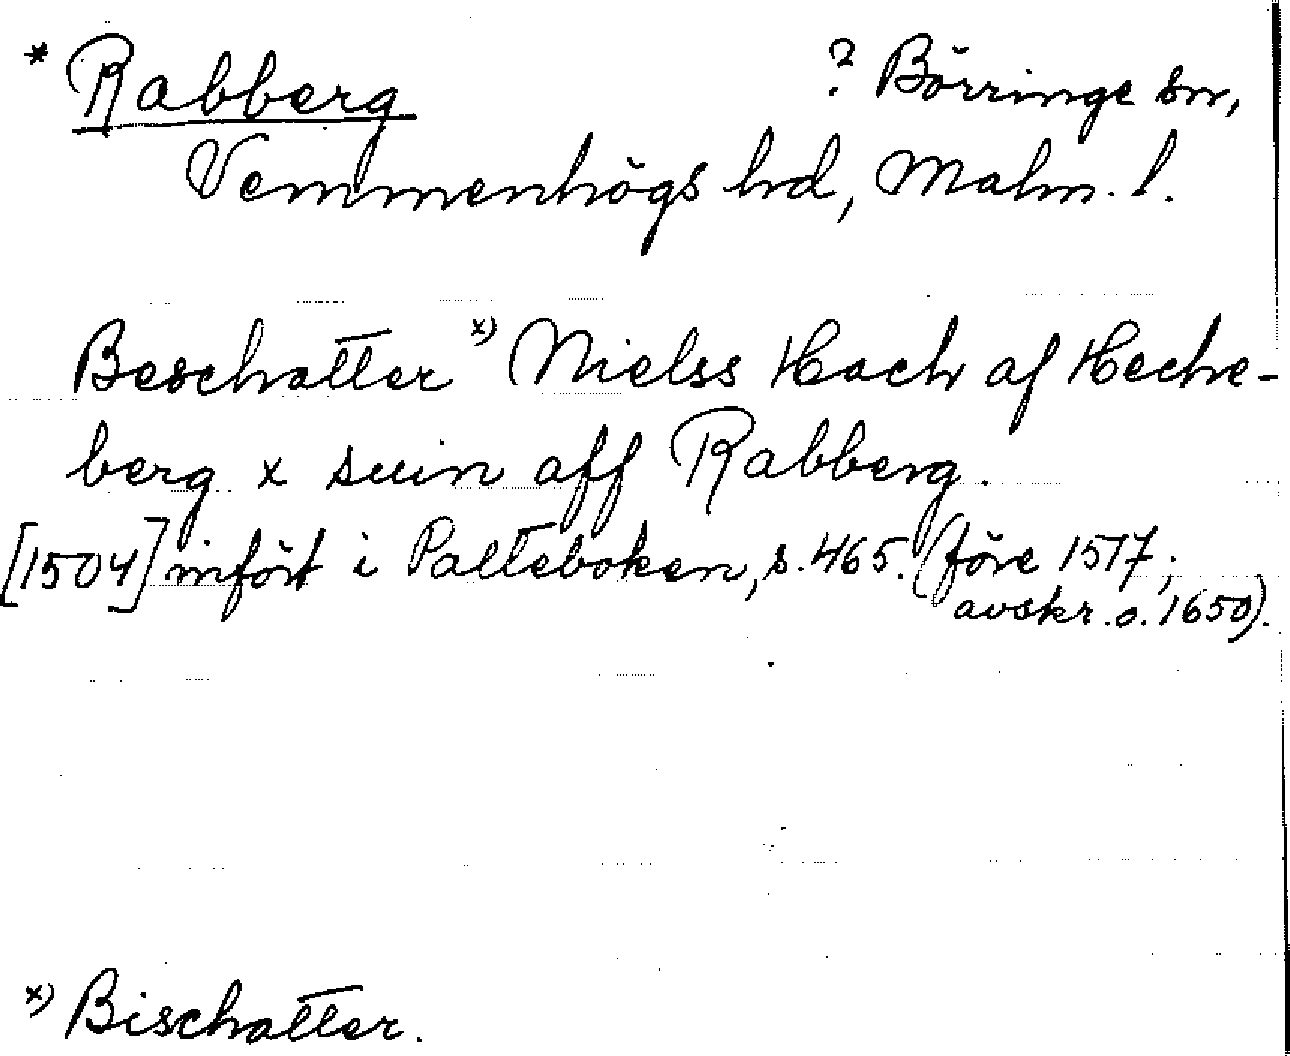 * Rabberg ? Börringe sn,
Vemmenhögs hd, Malm. l.
Beschatter x) Nielss Hach af Heche-
berg x suin aff Rabberg.
[1504] infört i Palteboken, s. 465. (före 1517;
avskr. o. 1650).
x) Bischatter.